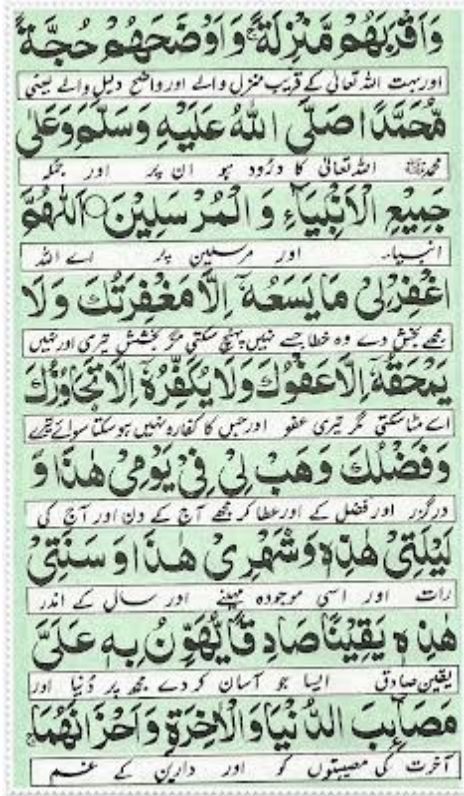 وَاَقْرَبِهُمْ مَّنْزِلَةً وَّاَوْضَحَهُمْ حُجَّةً
اور بہت اللہ تعالیٰ کے قریب منزل والے اور واضح دلیل والے یعنی
مُّحَمَّدًا صَلَّى اللهُ عَلَيْهِ وَسَلَّمَ وَعَلٰى
محمد ﷺ اللہ تعالیٰ کا درُود ہو ان پر اور جملہ
جَمِيْعِ الْاَنْۢبِيَآءِ وَ الْمُرْسَلِيْنَ ○ اَللّٰهُمَّ
انبیاء اور مرسلین پر اے اللہ
اغْفِرْلِيْ مَا يَسَعُهٗٓ اِلَّا مَغْفِرَتُكَ وَلَا
مجھے بخش دے وہ خطا جسے نہیں پہنچ سکتی مگر بخشش تیری اور نہیں
يَمْحَقُهٗٓ اِلَّا عَفْوُكَ وَلَا يُكَفِّرُهٗٓ اِلَّا تَجَاوُزُكَ
اے مٹا سکتی مگر تیری عفو اور جس کا کفارہ نہیں ہو سکتا سوائے تیرے
وَفَضْلُكَ وَهَبْ لِيْ فِيْ يَوْمِيْ هٰذَا وَ
درگزر اور فضل کے اور عطا کر مجھے آج کے دن اور آج کی
لَيْلَتِيْ هٰذِهٖ وَشَهْرِيْ هٰذَا وَ سَنَتِيْ
رات اور اسی موجودہ مہینے اور سال کے اندر
هٰذِهٖ يَقِيْنًا صَادِقًا يُّهَوِّنُ بِهٖ عَلَيَّ
یقین صادق ایسا جو آسان کر دے مجھ پر دُنیا اور
مَصَآئِبَ الدُّنْيَا وَالْاٰخِرَةِ وَاَحْزَانَهُمَا
آخرت کی مصیبتوں کو اور دارین کے غم